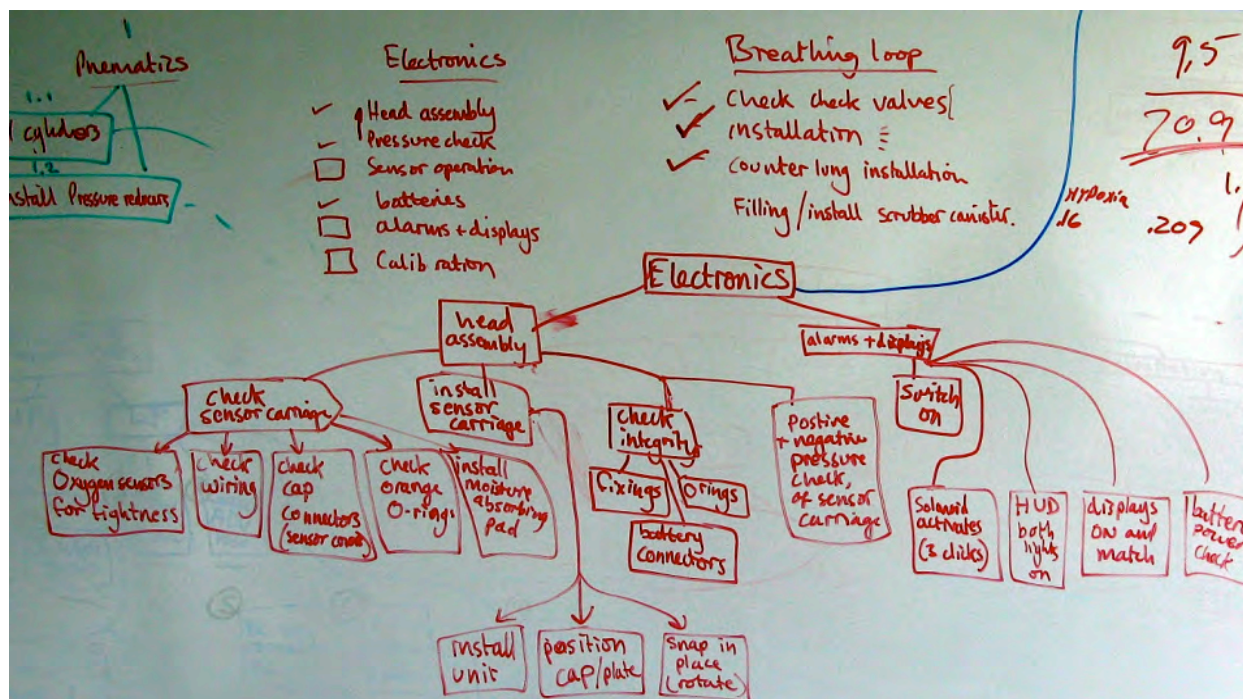 Pnematics
1.1
cylinders
1.2
install Pressure reducers
Electronics
Head assembly
Pressure check
Sensor operation
batteries
alarms + displays
Calibration
Breathing loop
Check check valves
installation
Counter lung installation
Filling / install scrubber canister.
9,5
20.9
HYPOXIA
.16
.209
1.
Electronics
head
assembly
alarms + displays
check
sensor carriage
install
sensor
carriage
check
integrity
Postive
+ negative
pressure
check,
of sensor
carriage
Switch
on
check
Oxygen sensors
for tightness
check
wiring
check
cap
connectors
(sensor
check
orange
O-rings
install
moisture
absorbing
pad
fixings
O rings
battery
connectors
Solonoid
activates
(3 clicks)
HUD
both
lights
on
displays
ON and
match
battery
power
check
install
unit
position
cap/plate
Snap in
place
(rotate)